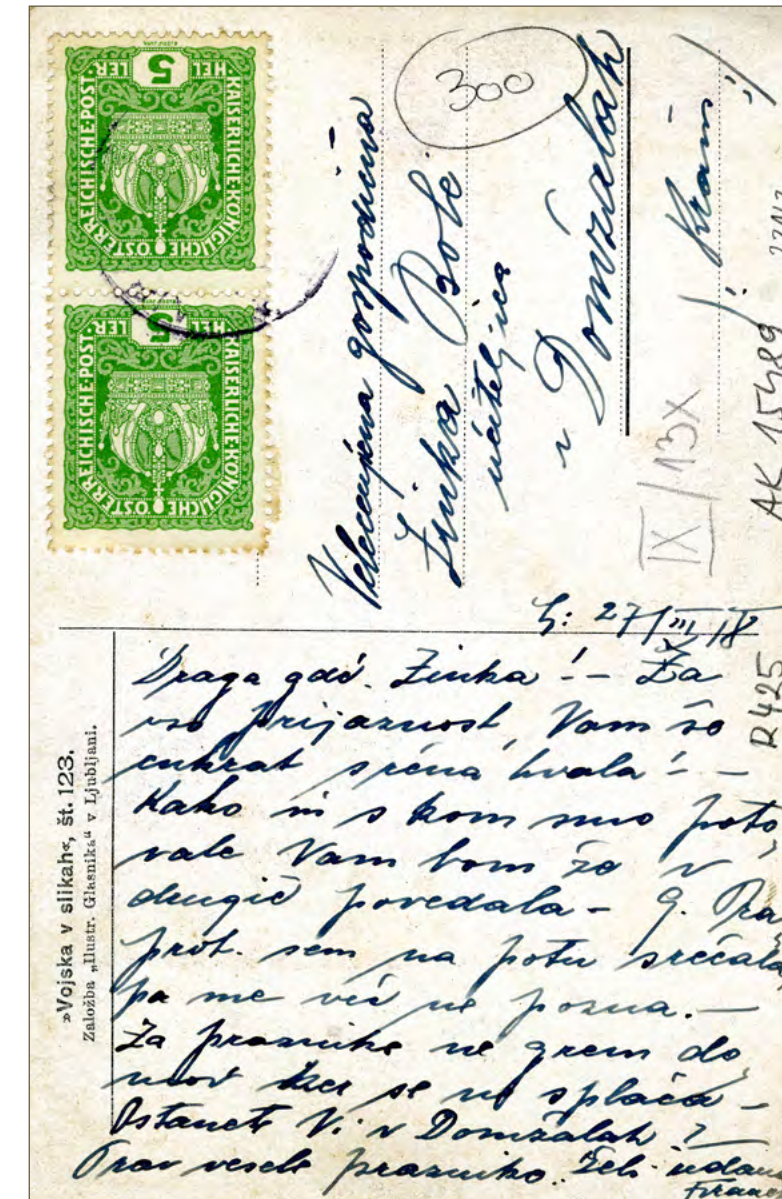 KAISERLICHE·KÖNIGLICHE·ÖSTERREICHISCHE·POST·
HEL 5 LER
KAISERLICHE·KÖNIGLICHE·ÖSTERREICHISCHE·POST·
HEL 5 LER
300
Velecenjena gospodična
Zinka Bole
učiteljica
v Domžalah
Krain
IX/13X
AK 15489
R425
27/III 18
»Vojska v slikah«, št. 123.
Založba „Ilustr. Glasnika“ v Ljubljani.
Draga gdč. Zinka! – Za
vso prijaznost Vam še
enkrat srčna hvala! –
Kako in s kom smo poto
vale Vam bom že v
drugič povedala – G. Pra
prot. sem na potu srečala
pa me več ne pozna. –
Za praznike ne grem do
mov ker se ne splača –
Ostanete Vi v Domžalah? –
Prav vesele praznike. želi udana